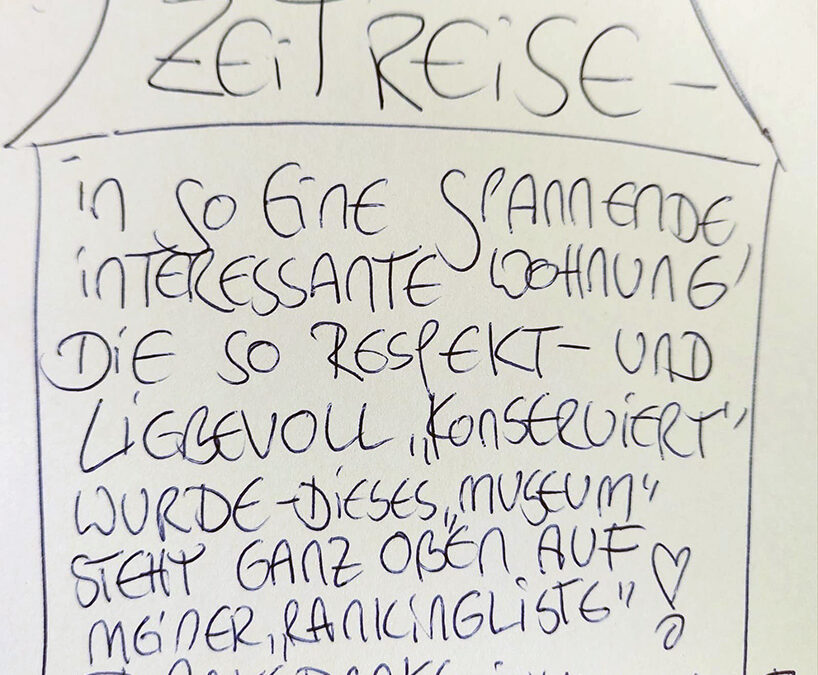 ZEITREISE -
in SO EINE SPANNENDE
INTERESSANTE WOHNUNG,
DIE SO RESPEKT- UND
LIEBEVOLL „KONSERVIERT"
WURDE - DIESES „MUSEUM"
STEHT GANZ OBEN AUF
MEINER „RANKINGLISTE"